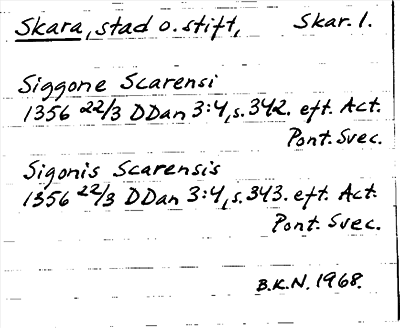 Skara, stad o. stift, Skar. l.
Siggone Scarensi
1356 22/3 DDan 3:4, s. 342. eft. Act.
Pont. Svec.
Sigonis Scarensis
1356 22/3 DDan 3:4, s. 343. eft. Act.
Pont. Svec.
B.K.N. 1968.